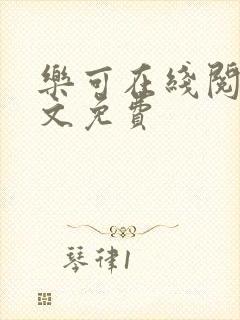 樂可在綫閱
文免費
琴律1